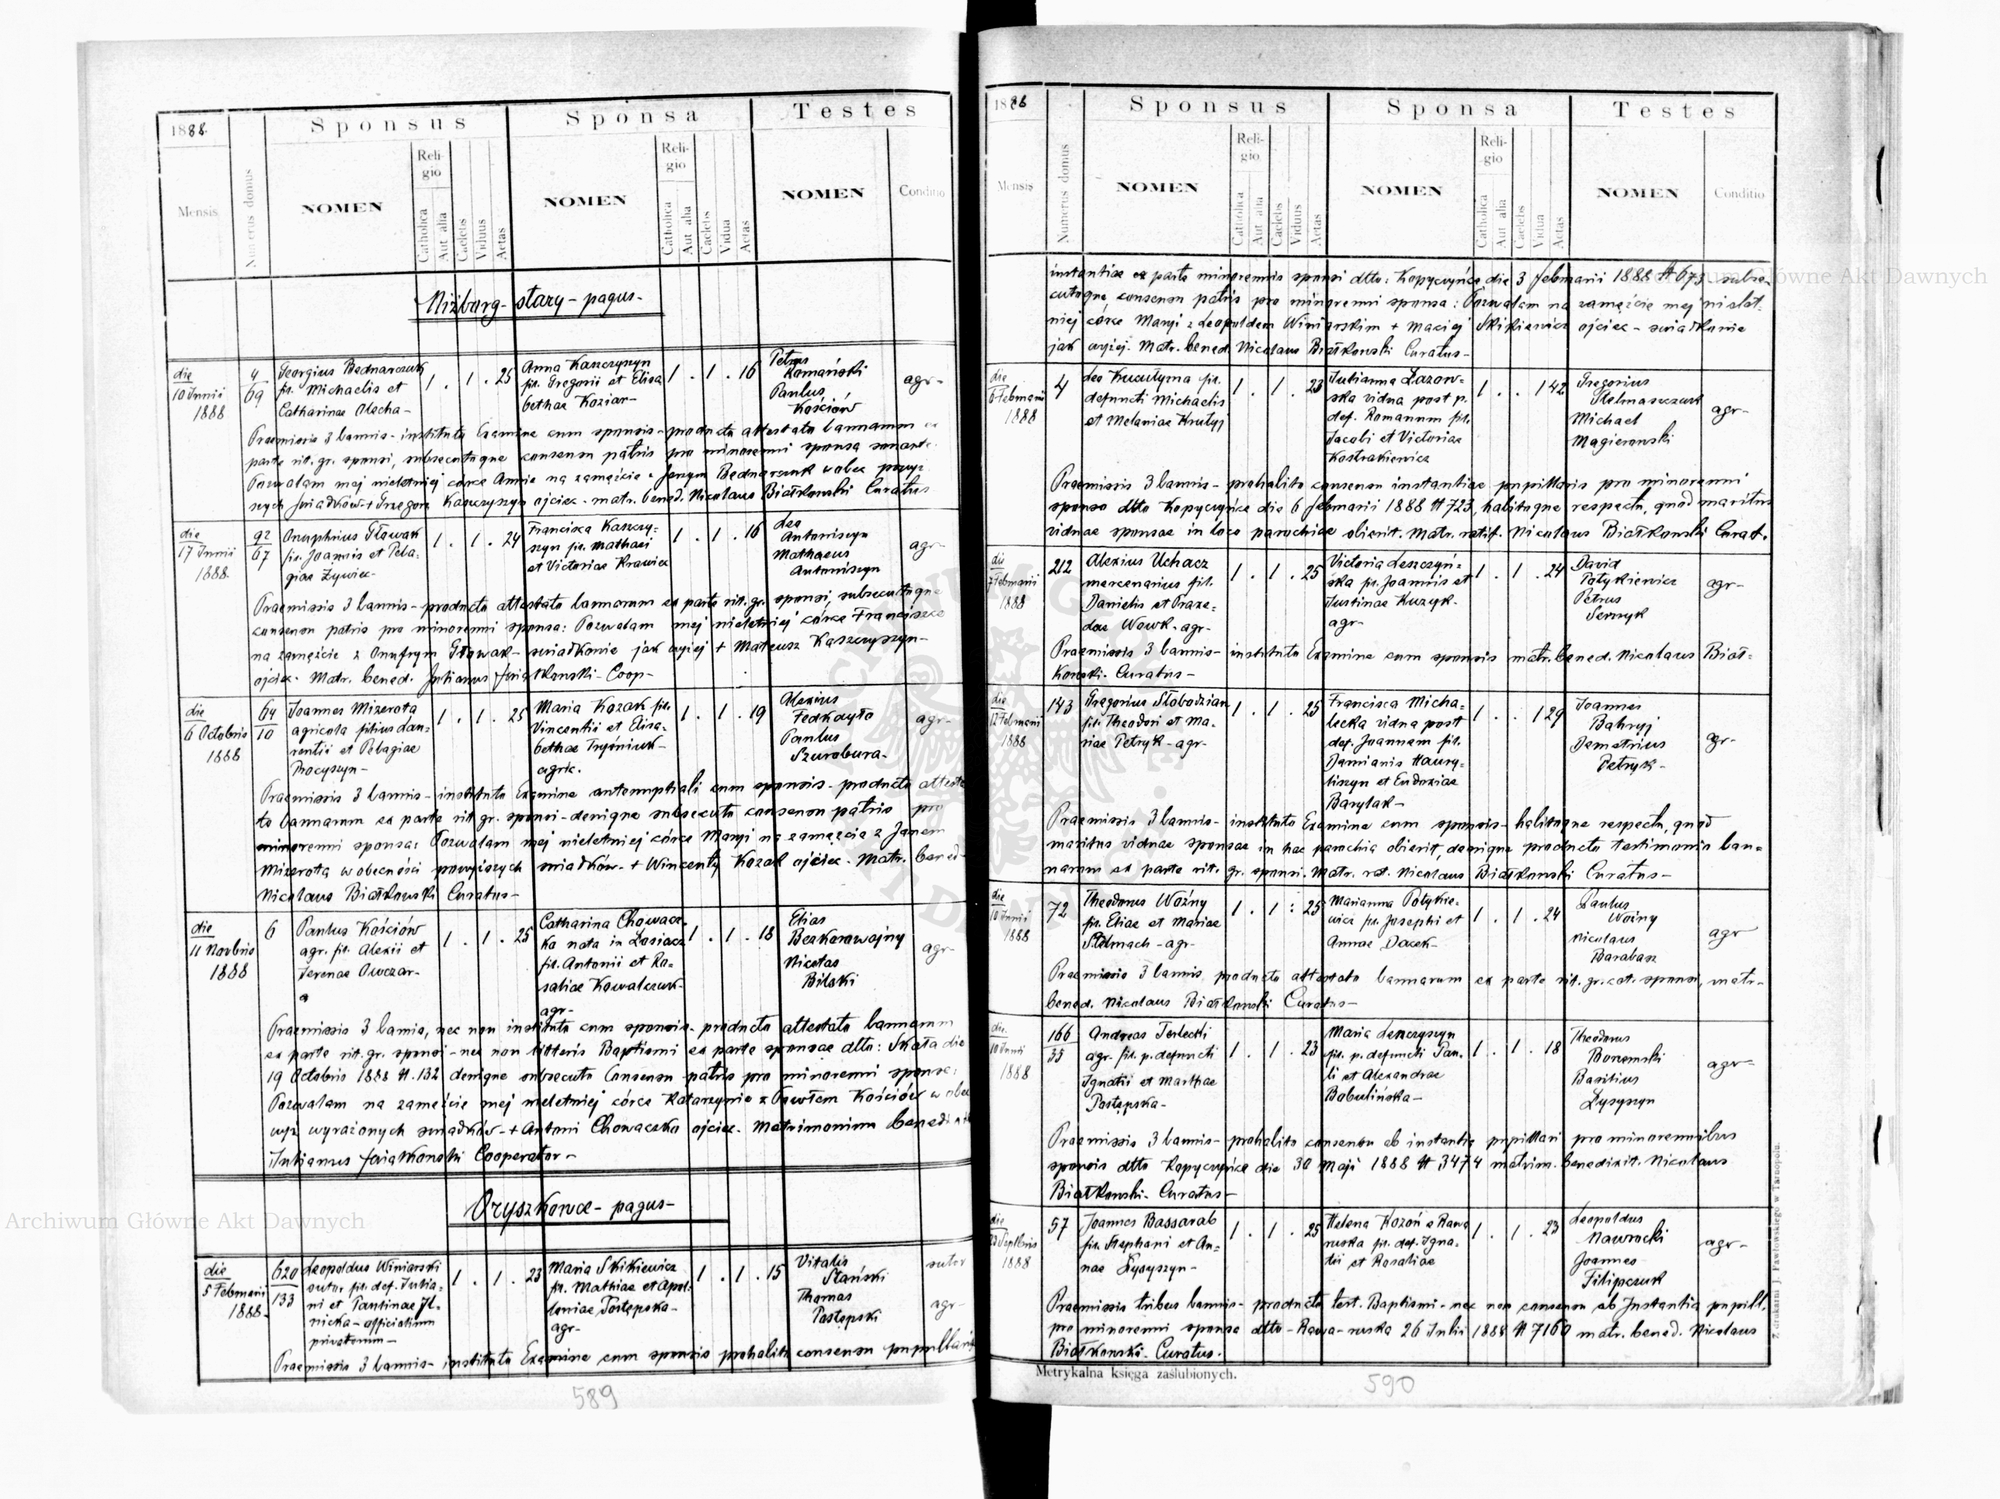 1888.
Sponsus
Sponsa
Testes
Mensis
Numerus domus
NOMEN
Religio
Catholica
Aut alia
Caelebs
Viduus
Aetas
NOMEN
Religio
Catholica
Aut alia
Caelebs
Vidua
Aetas
NOMEN
Conditio
Niżborg-stary-pagus-
die
10 Junii
1888
4
69
Georgius Bednarczuk
fil. Michaelis et
Catharinae
1 . 1 . 25
Anna Kaszczyszyn
fil. Gregorii et Elisa
bethae Koziar-
1 . 1 . 16
Petrus
Romański
Paulus
Kościów
agr-
Praemissis 3 bannis- instituto Examine cum sponsis- producto attestato bannorum ex
parte rit. gr. sponsi, subsecutoque consensu patris pro minorenni sponsa
Pozwalam mej nieletniej córce Annie na zamęście Bednarczuk wobec
świadków + Grzegorz Kaszczyszyn ojciec- matr. bened. Nicolaus Białkowski Curatus
die
17 Junii
1888.
92
67
Onuphrius Gławak
fil. Joannis et Pela-
giae Żywiec-
1 . 1 . 24
Francisca Kaszczy-
szyn fil. Mathaei
et Victoriae Krawiec
1 . 1 . 16
Leo
Antoniszyn
Mathaeus
Antoniszyn
agr-
Praemissis 3 bannis- producto attestato bannorum ex parte rit. gr. sponsi, subsecutoque
consensu patris pro minorenni sponsa: Pozwalam mej nieletniej córce Franciszce
na zamęście z Onufrym Gławak- świadkowie jak wyżej + Mateusz Kaszczyszyn-
ojciec- Matr. bened. Julianus Coop-
die
6 Octobris
1888
64
10
Joannes Mizerota
agricola filius Lau-
rentii et Pelagiae
Procyszyn-
1 . 1 . 25
Maria Kozak fil.
Vincentii et Elisa-
bethae Tryśniuk-
agric.
1 . 1 . 19
Alexius
Paulus
Szwrobura-
agr-
Praemissis 3 bannis- instituto Examine antenuptiali cum sponsis- producto attesta
to bannorum ex parte rit. gr. sponsi- denique subsecuto consensu patris pro
minorenni sponsa: Pozwalam mej nieletniej córce Maryi na zamęście z Janem
Mizerota w obecności powyższych świadków- + Wincenty Kozak ojciec- Matr. bened-
Nicolaus Białkowski Curatus-
die
11 Novbris
1888
6
Paulus Kościów
agr. fil. Alexii et
Owczar-
1 . 1 . 25
Catharina Chowacz-
ka nata in Losiacz
fil. Antonii et Ro-
saliae Kowalczuk-
agr-
1 . 1 . 18
Elias
Bezkorowajny
Nicetas
Bilski
agr-
Praemissis 3 bannis, nec non instituto cum sponsis- producto attestato bannorum
ex parte rit. gr. sponsi- nec non litteris Baptismi ex parte sponsae dtto: Skała die
19 Octobris 1888 N. 132 denique subsecuto Consensu patris pro minorenni sponsa:
Pozwalam na zamęście mej nieletniej córce Katarzynie z Pawłem Kościów w obec
wyż wyrażonych świadków- + Antoni Chowaczka ojciec- Matrimonium
Julianus Cooperator-
Oryszkowce- pagus-
die
5 Februarii
1888-
620
133
Leopoldus Winiarski
sutor fil. def. Julia-
ni et Paulinae Jl-
nicka- officialium
privatorum-
1 . 1 . 23
Maria Skikiewicz
fil. Mathiae et Apol-
loniae Postępska-
agr-
1 . 1 . 15
Vitalis
Stański
Thomas
Postępski
sutor
agr-
Praemissis 3 bannis- instituto Examine cum sponsis prohabito consensu
589
1888
Sponsus
Sponsa
Testes
Mensis
Numerus domus
NOMEN
Religio
Catholica
Aut alia
Caelebs
Viduus
Aetas
NOMEN
Religio
Catholica
Aut alia
Caelebs
Vidua
Aetas
NOMEN
Conditio
instantiae ex parte minorennis sponsi dtto: Kopyczyńce die 3 februarii 1888 N 673- subse-
cutoque consensu patris pro minorenni sponsa: Pozwalam na zamęście mej nielet-
niej córce Maryi z Leopoldem Winiarskim + Maciej Skikiewicz ojciec- świadkowie
jak wyżej. Matr. bened. Nicolaus Białkowski Curatus-
die
6 Februarii
1888
4
Leo Kuczyma fil.
defuncti Michaelis
et Melaniae Krutyj
1 . 1 . 23
Julianna Łazow-
ska vidua post p.
def. Romanum fil.
Jacobi et Victoriae
Kostrakiewicz
1 . . 1 42
Gregorius
Stelmaszczuk
Michael
Magierowski
agr-
Praemissis 3 bannis- prohabito consensu instantiae pupillaris pro minorenni
sponso dtto Kopyczyńce die 6 februarii 1888 N 723, habitoque respectu, quod maritus
viduae sponsae in loco parochiae obierit. Matr. ratif. Nicolaus Białkowski Curat.
die
7 Februarii
1888
212
Alexius Uchacz
mercenarius fil.
Danielis et Praxe-
dae Wowk- agr-
1 . 1 . 25
Victoria Leszczyń-
ska fil. Joannis et
Justinae Kuzyk-
agr-
1 . 1 . 24
David
Potykiewicz
Petrus
agr-
Praemissis 3 bannis- instituto Examine cum sponsis matr. bened. Nicolaus Biał-
kowski- Curatus-
die
12 Februarii
1888
143
Gregorius Słobodzian
fil. Theodori et Ma-
riae Petryk- agr-
1 . 1 . 25
Francisca Micha-
lecka vidua post
def. Joannem fil.
Damianis Hawry-
liszyn et Eudoxiae
Barylak-
1 . . 1 29
Joannes
Bahryj
Demetrius
Petryk-
agr-
Praemissis 3 bannis- instituto Examine cum sponsis- habitoque respectu, quod
maritus viduae sponsae in hac parochia obierit, denique producto testimonio ban-
norum ex parte rit. gr. sponsi. Matr. rat. Nicolaus Białkowski Curatus-
die
10 Junii
1888
72
Theodorus Woźny
fil. Eliae et Mariae
Stelmach- agr-
1 . 1 : 25
Marianna Potykie-
wicz fil. Josephi et
Annae Dacek-
1 . 1 . 24
Paulus
Woźny
Nicolaus
Barabasz
agr
Praemissis 3 bannis producto attestato bannorum ex parte rit. gr. cat. sponsi, matr-
bened. Nicolaus Białkowski Curatus-
die.
10 Junii
1888
166
35
Andreas Terlecki
agr. fil. p. defuncti
Ignatii et Marthae
Postępska-
1 . 1 . 23
Maria Leszczyszyn
fil. p. defuncti Pau-
li et Alexandrae
Bobulińska-
1 . 1 . 18
Theodorus
Basilius
Łysyszyn
agr-
Praemissis 3 bannis- prohabito consensu ab instantia pupillari pro minorennibus
sponsis dtto Kopyczyńce die 30 Maji 1888 N 3474 matrim. benedixit. Nicolaus
Białkowski- Curatus-
die
Septbris
1888
57
Joannes Bassarab
fil. Stephani et An-
nae Łysyszyn-
1 . 1 . 25
Helena Kozoń e Rawa
ruska fil. def. Igna-
tii et Rosaliae
1 . 1 . 23
Leopoldus
Nawrocki
Joannes
Filipczuk
agr-
Praemissis tribus bannis- producto test. Baptismi- nec non consensu ab Instantia pupill.
pro minorenni sponsa dtto- Rawa-ruska 26 Julii 1888 N 7160 matr. bened. Nicolaus
Białkowski- Curatus.
Metrykalna księga zaślubionych.
590
Z drukarni J. Pawłowskiego w Tarnopolu.
Archiwum Główne Akt Dawnych
Archiwum Główne Akt Dawnych